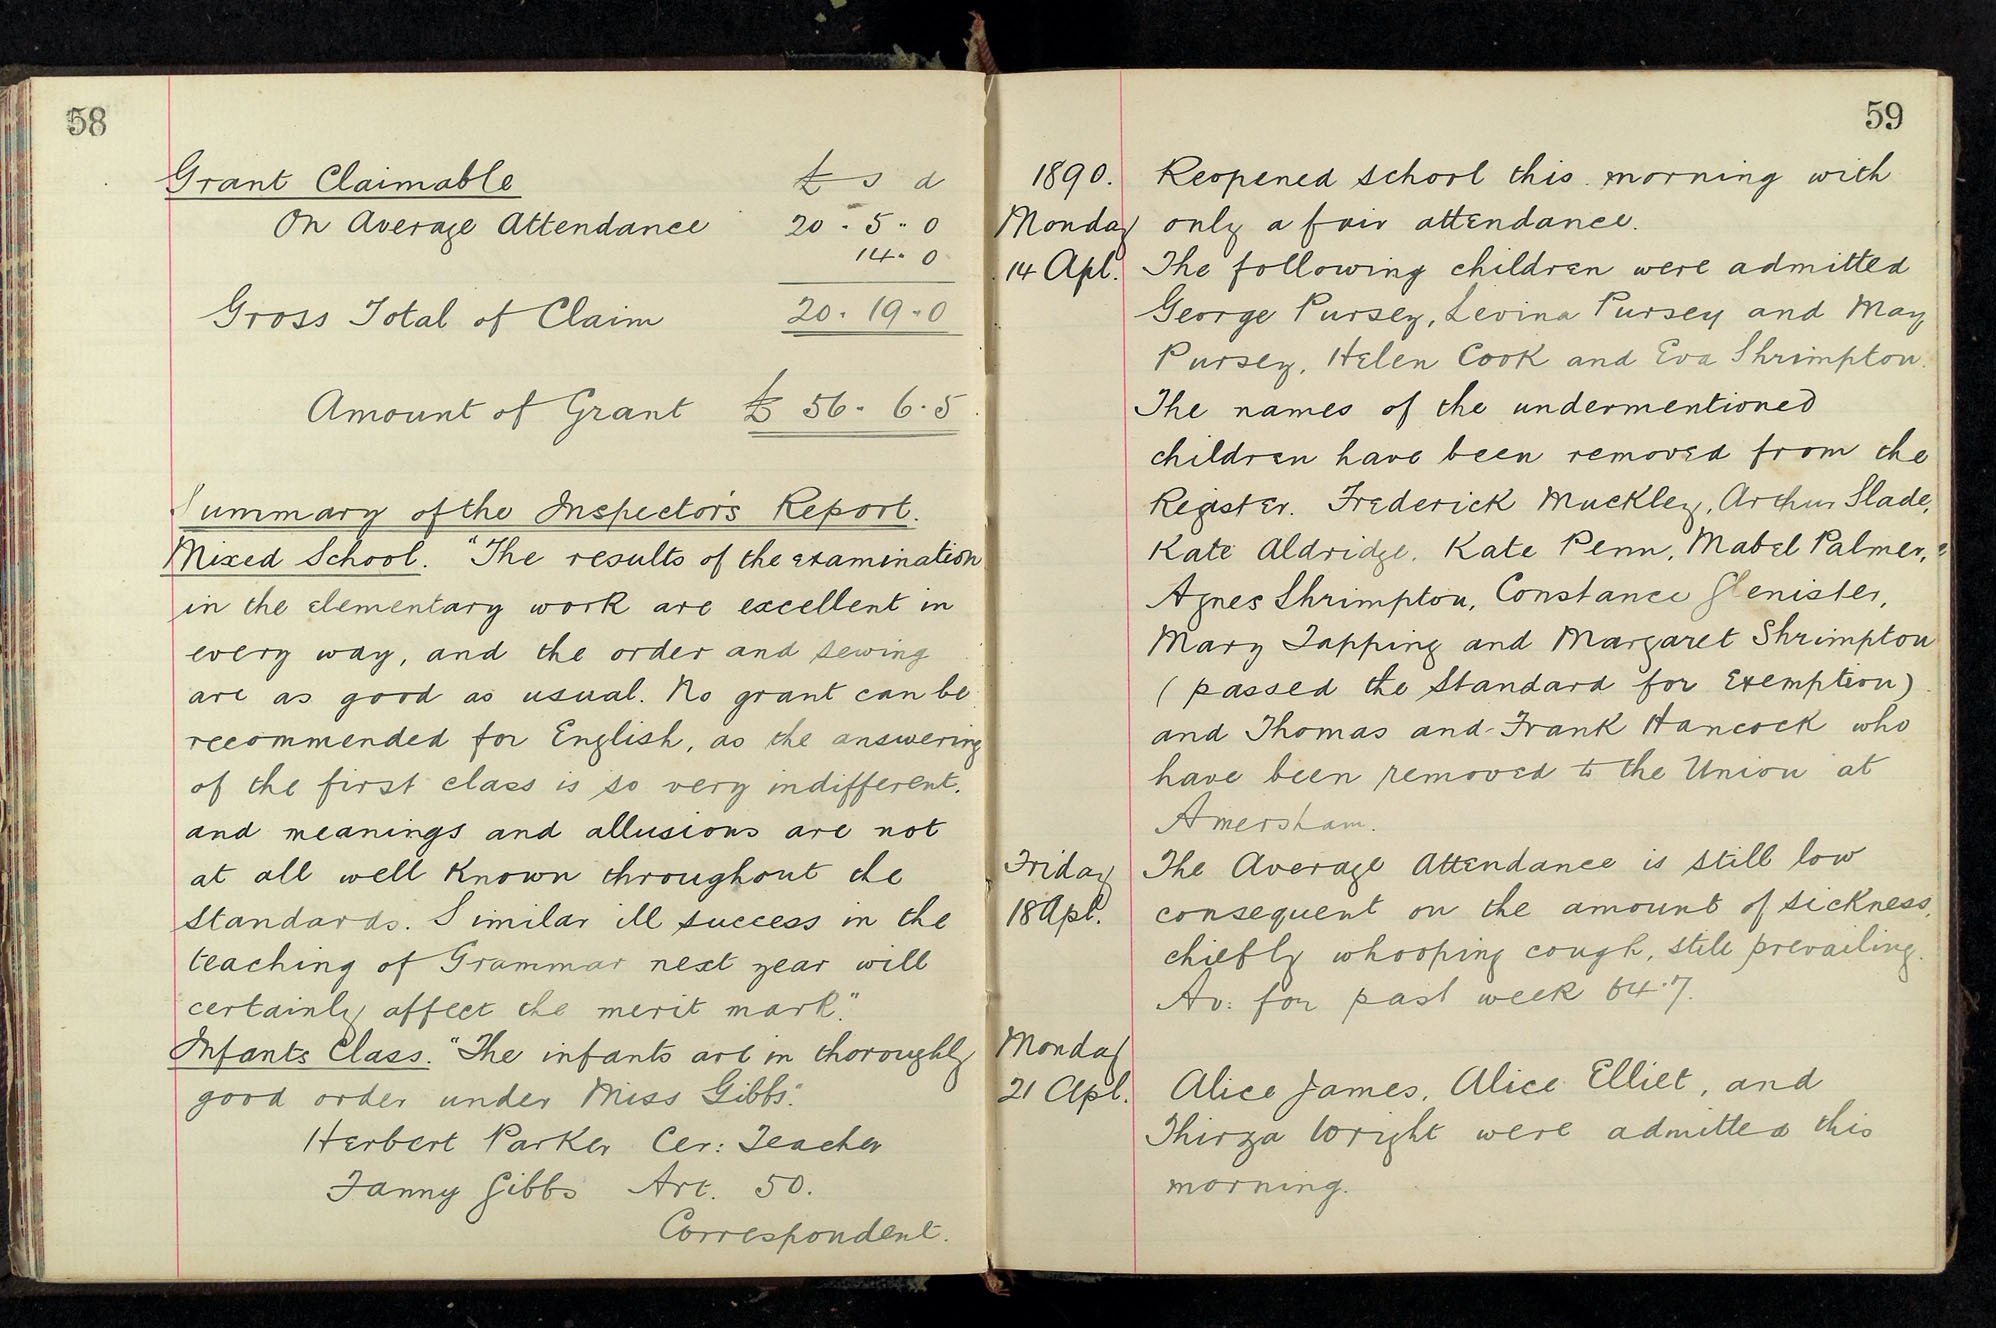 58
Grant Claimable £ s d
On Average Attendance 20 - 5 - 0
14 - 0
Gross Total of Claim 20 - 19 - 0
Amount of Grant £ 56 - 6 - 5
Summary of the Inspector's Report.
Mixed School. "The results of the examination
in the elementary work are excellent in
every way, and the order and sewing
are as good as usual. No grant can be
recommended for English, as the answering
of the first class is so very indifferent.
and meanings and allusions are not
at all well known throughout the
standards. Similar ill success in the
teaching of Grammar next year will
certainly affect the merit mark."
Infants Class. "The infants are in thoroughly
good order under Miss Gibbs."
Herbert Parker Cer: Teacher
Fanny Gibbs Art. 50.
Correspondent.
59
1890. Reopened school this morning with
Monday only a fair attendance.
14 Apl. The following children were admitted
George Pursey, Levina Pursey and May
Pursey, Helen Cook and Eva Shrimpton.
The names of the undermentioned
children have been removed from the
Register. Frederick Muckley, Arthur Slade,
Kate Aldridge. Kate Penn, Mabel Palmer,
Agnes Shrimpton, Constance Glenister,
Mary Tapping and Margaret Shrimpton
(passed the Standard for Exemption)
and Thomas and Frank Hancock who
have been removed to the Union at
Amersham.
Friday The Average Attendance is still low
18 Apl. consequent on the amount of sickness,
chiefly whooping cough, still prevailing.
Av: for past week 64.7.
Monday
21 Apl. Alice James, Alice Elliet, and
Thirza Wright were admitted this
morning.